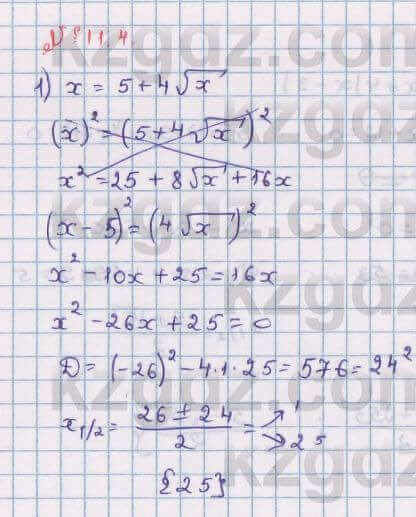 № 11.4.
1) x = 5 + 4√x
(x)² = (5 + 4√x)²
x² = 25 + 8√x + 16x
(x - 5)² = (4√x)²
x² - 10x + 25 = 16x
x² - 26x + 25 = 0
D = (-26)² - 4·1·25 = 576 = 24²
x₁/₂ = (26 ± 24)/2 = ↗ 1 ↘ 25
{25}
kzgdz.com